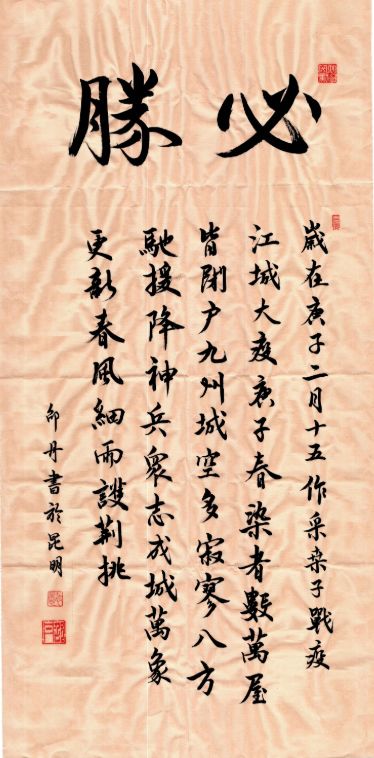 必勝
歲在庚子二月十五作采桒子戰疫
江城大疫庚子春染者數萬屋
皆閉户九州城空多寂寥八方
馳援降神兵衆志成城萬象
更新春風細雨護荊挑
邵丹書於昆明